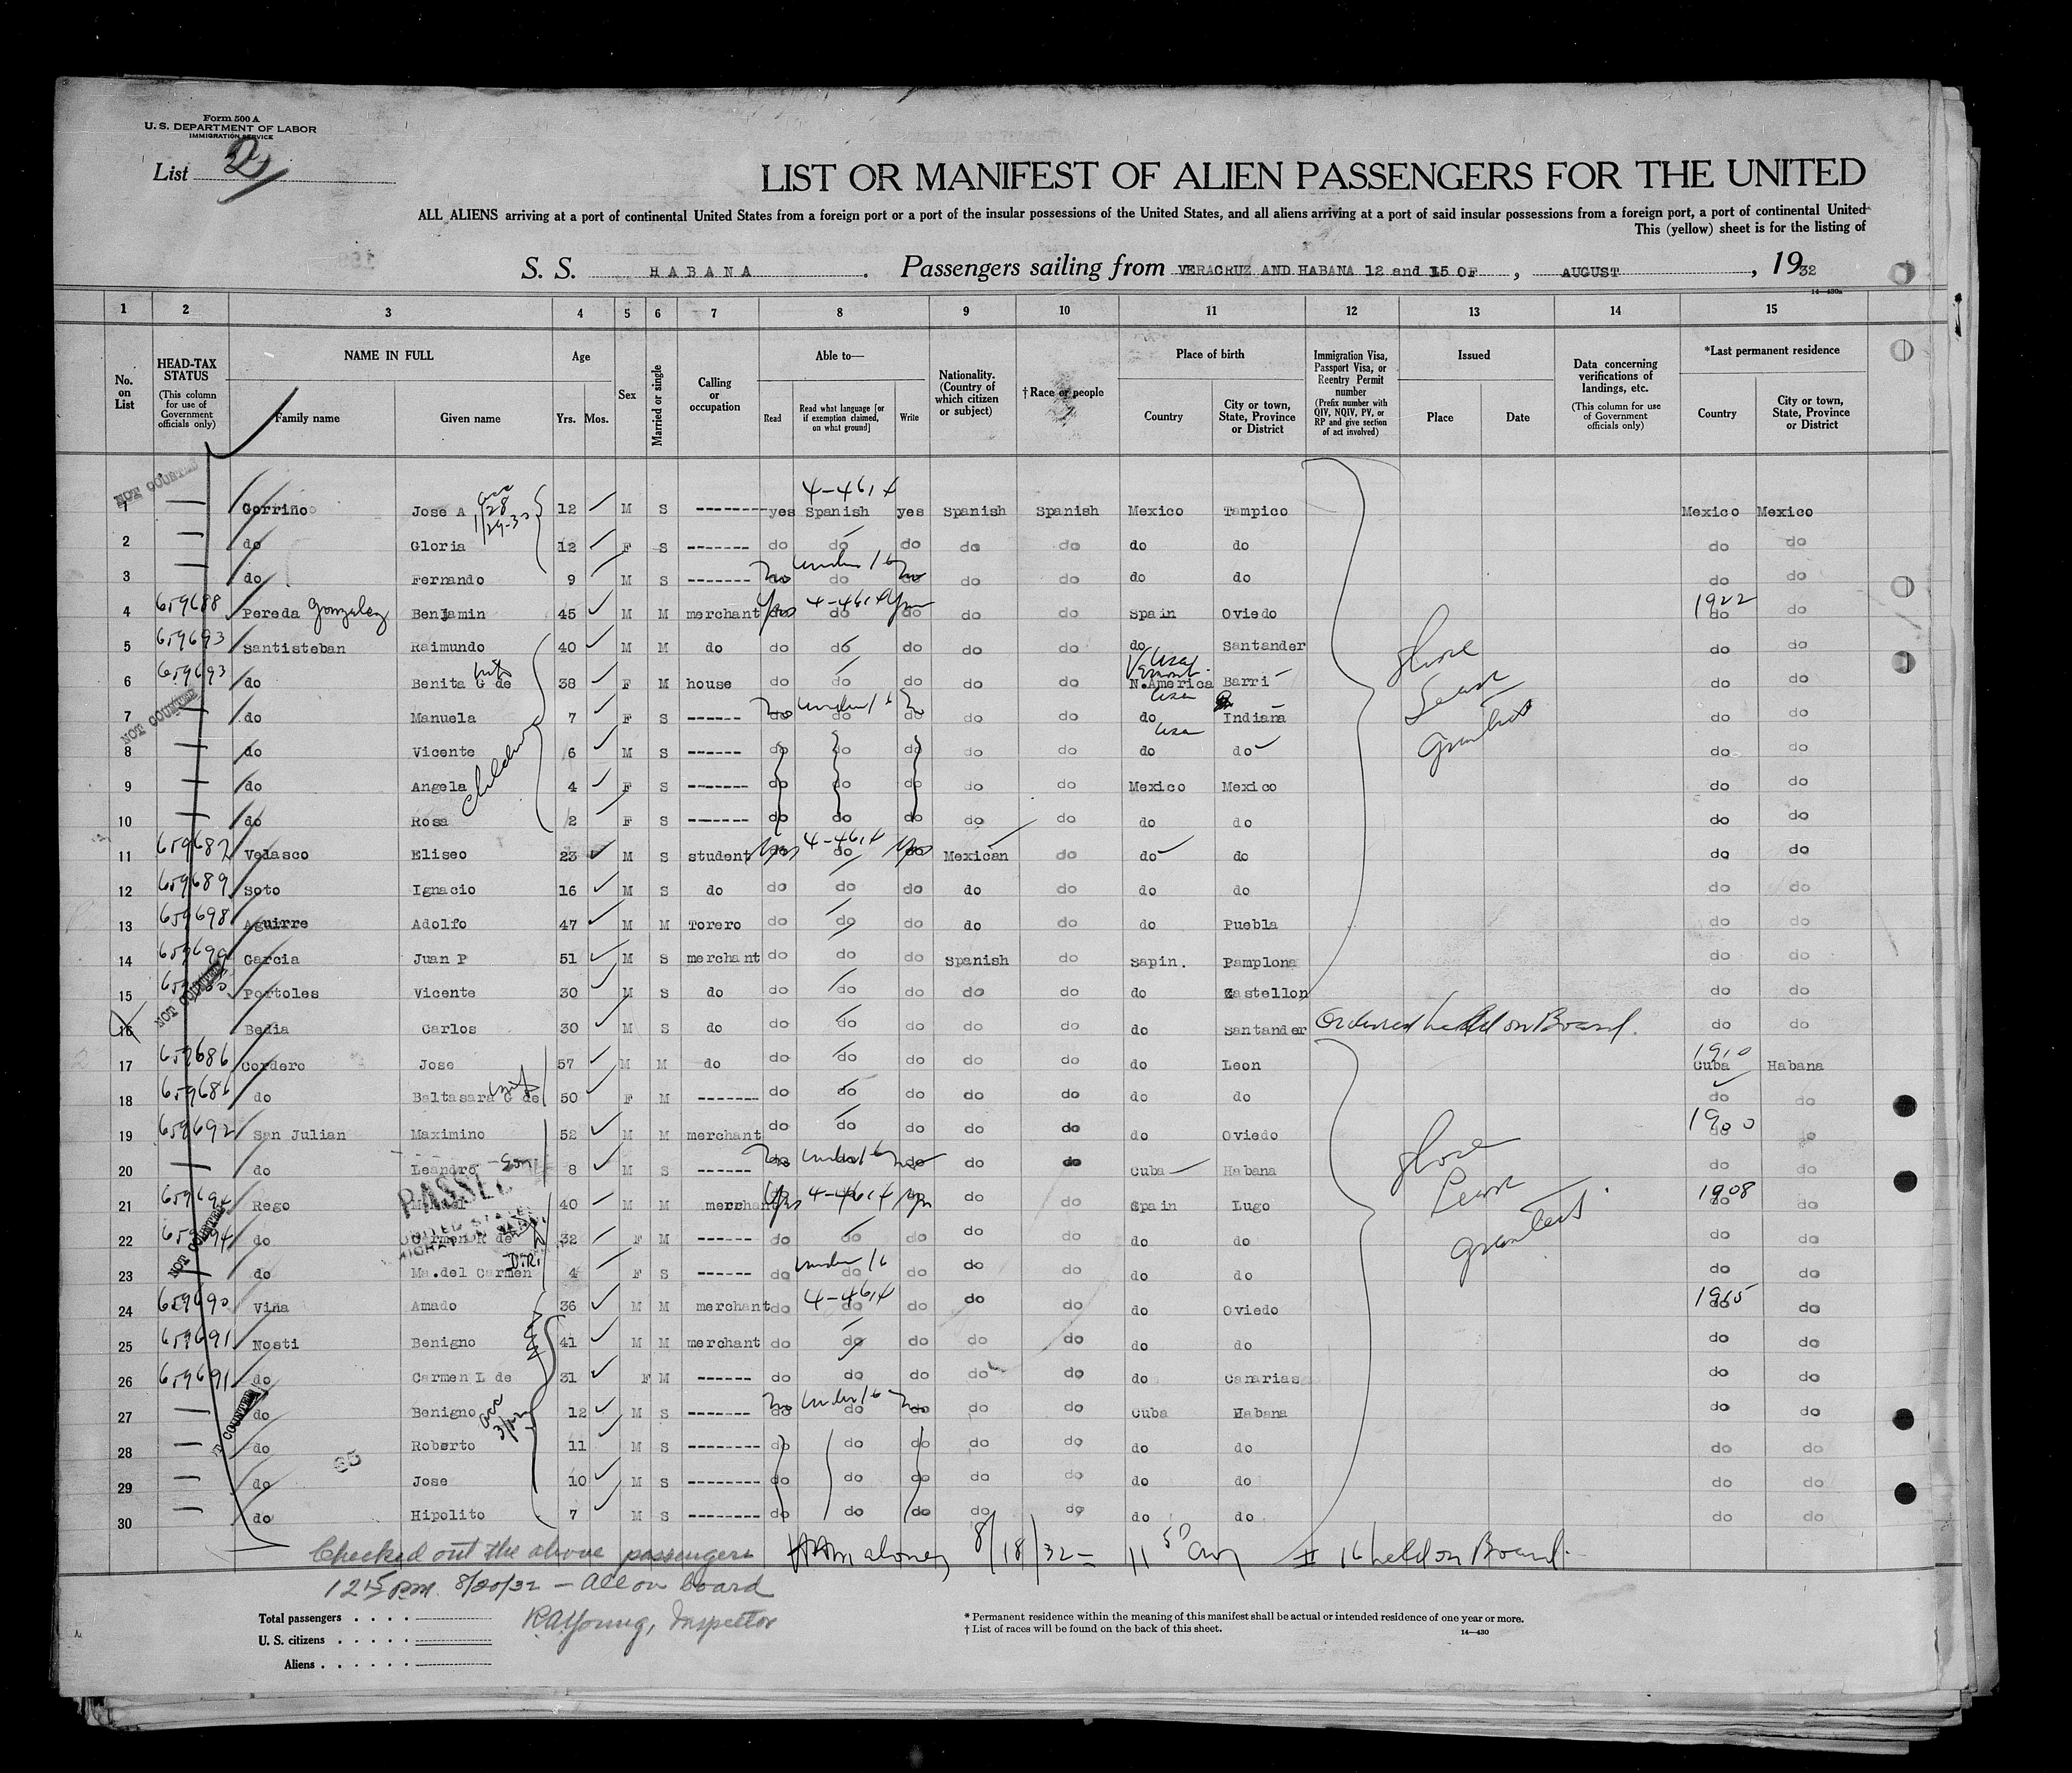 Form 500 A
U. S. DEPARTMENT OF LABOR
IMMIGRATION SERVICE
List 2
LIST OR MANIFEST OF ALIEN PASSENGERS FOR THE UNITED
ALL ALIENS arriving at a port of continental United States from a foreign port or a port of the insular possessions of the United States, and all aliens arriving at a port of said insular possessions from a foreign port, a port of continental United
This (yellow) sheet is for the listing of
S. S. HABANA . Passengers sailing from VERACRUZ AND HABANA 12 and 15 OF , AUGUST , 1932
14—430a
1 2 3 4 5 6 7 8 9 10 11 12 13 14 15
No. on List
HEAD-TAX STATUS (This column for use of Government officials only)
NAME IN FULL Family name Given name
Age Yrs. Mos.
Sex
Married or single
Calling or occupation
Able to— Read Read what language [or if exemption claimed, on what ground] Write
Nationality. (Country of which citizen or subject)
†Race or people
Place of birth Country City or town, State, Province or District
Immigration Visa, Passport Visa, or Reentry Permit number (Prefix number with QIV, NQIV, PV, or RP and give section of act involved)
Issued Place Date
Data concerning verifications of landings, etc. (This column for use of Government officials only)
*Last permanent residence Country City or town, State, Province or District
NOT COUNTED
4-4614
1 — Gorriño Jose A 12 M S -------- yes Spanish yes Spanish Spanish Mexico Tampico Mexico Mexico
2 — do Gloria 12 F S ------- do do do do do do do do do
under 16
3 — do Fernando 9 M S ------- no do no do do do do do do
4 659688 Pereda Gonzalez Benjamin 45 M M merchant yes 4-4614 do yes do do Spain Oviedo 1922 do do
5 659693 Santisteban Raimundo 40 M M do do do do do do do Santander do do
6 659693 do Benita G de wife 38 F M house do do do do do Vermont USA N.America Barri do do
NOT COUNTED
7 — do Manuela 7 F S ------ no under 16 do no do do USA do Indiana do do
8 — do Vicente 6 M S ------ do do do do do USA do do do do
children
9 — do Angela 4 F S ------- do do do do do Mexico Mexico do do
10 — do Rosa 2 F S ------- do do do do do do do do do
11 659687 Velasco Eliseo 23 M S student yes 4-4614 do yes Mexican do do do do do
12 659689 Soto Ignacio 16 M S do do do do do do do do do do
13 659698 Aguirre Adolfo 47 M M Torero do do do do do do Puebla do do
14 Garcia Juan P 51 M S merchant do do do Spanish do Sapin. Pamplona do do
NOT COUNTED
15 Portoles Vicente 30 M S do do do do do do do Castellon do do
16 Bedia Carlos 30 M S do do do do do do do Santander Ordered held on Board. do do
17 659686 Cordero Jose 57 M M do do do do do do do Leon 1910 Cuba Habana
18 659686 do Baltasara G de wife 50 F M ------- do do do do do do do do do
19 659692 San Julian Maximino 52 M M merchant do do do do do do Oviedo 1900 do do
20 — do Leandro - Son 8 M S ------ no under 16 no do do Cuba Habana do do
PASSED
21 659694 Rego Manuel 40 M M merchant yes 4-4614 yes do do Spain Lugo 1908 do do
22 659694 do Carmen R de 32 F M ------ do do do do do do do do do
NOT COUNTED
23 — do Ma.del Carmen 4 F S ------ do under 16 do do do do do do do do
24 659690 Vina Amado 36 M M merchant do 4-4614 do do do do do Oviedo 1915 do do
25 659691 Nosti Benigno 41 M M merchant do do do do do do do do do
26 659691 do Carmen L de 31 F M ------ do do do do do do Canarias do do
27 — do Benigno 12 M S ------- no under 16 do no do do Cuba Habana do do
28 — do Roberto 11 M S -------- do do do do do do do do do
29 — do Jose 10 M S -------- do do do do do do do do do
30 — do Hipolito 7 M S -------- do do do do do do do do do
Shore Leave granted
Shore Leave granted
Checked out the above passengers 8/18/32 = 11 50 am # 16 held on Board.
12 15 pm. 8/20/32 — All on board
R A Young, Inspector
Total passengers . . . .
U. S. citizens . . . . .
Aliens . . . . . .
* Permanent residence within the meaning of this manifest shall be actual or intended residence of one year or more.
† List of races will be found on the back of this sheet. 14—430